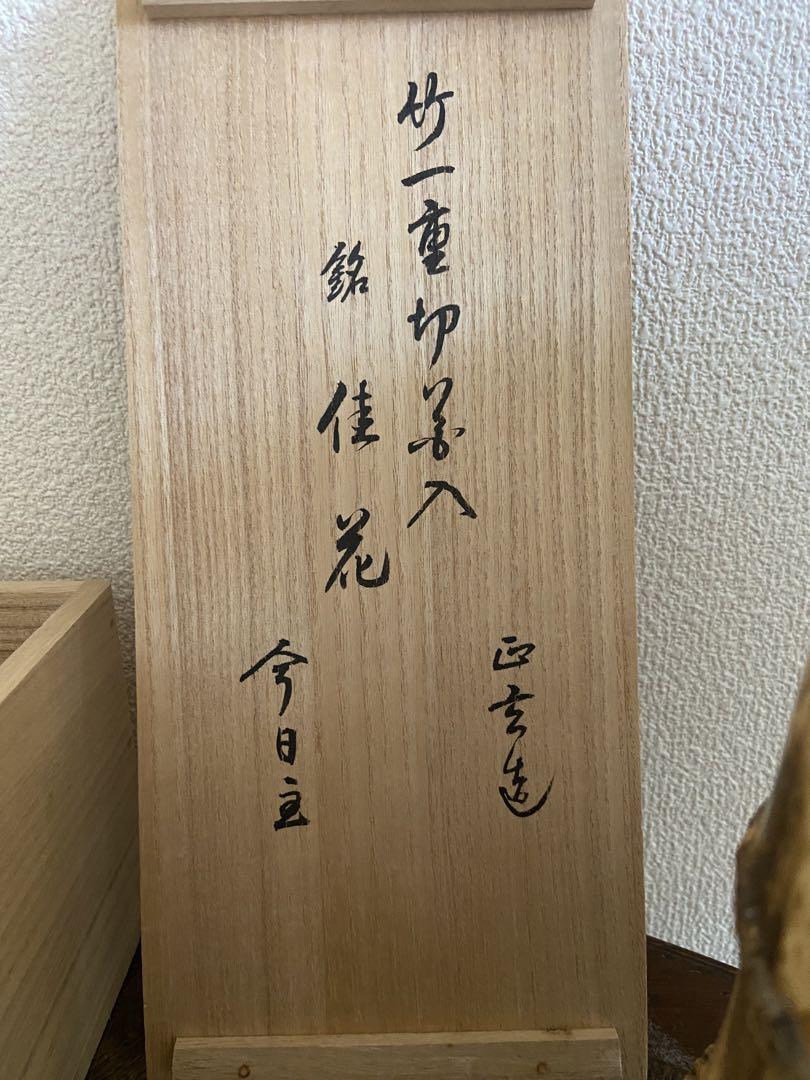 正玄造
竹一重切華入
銘 佳花
今日主